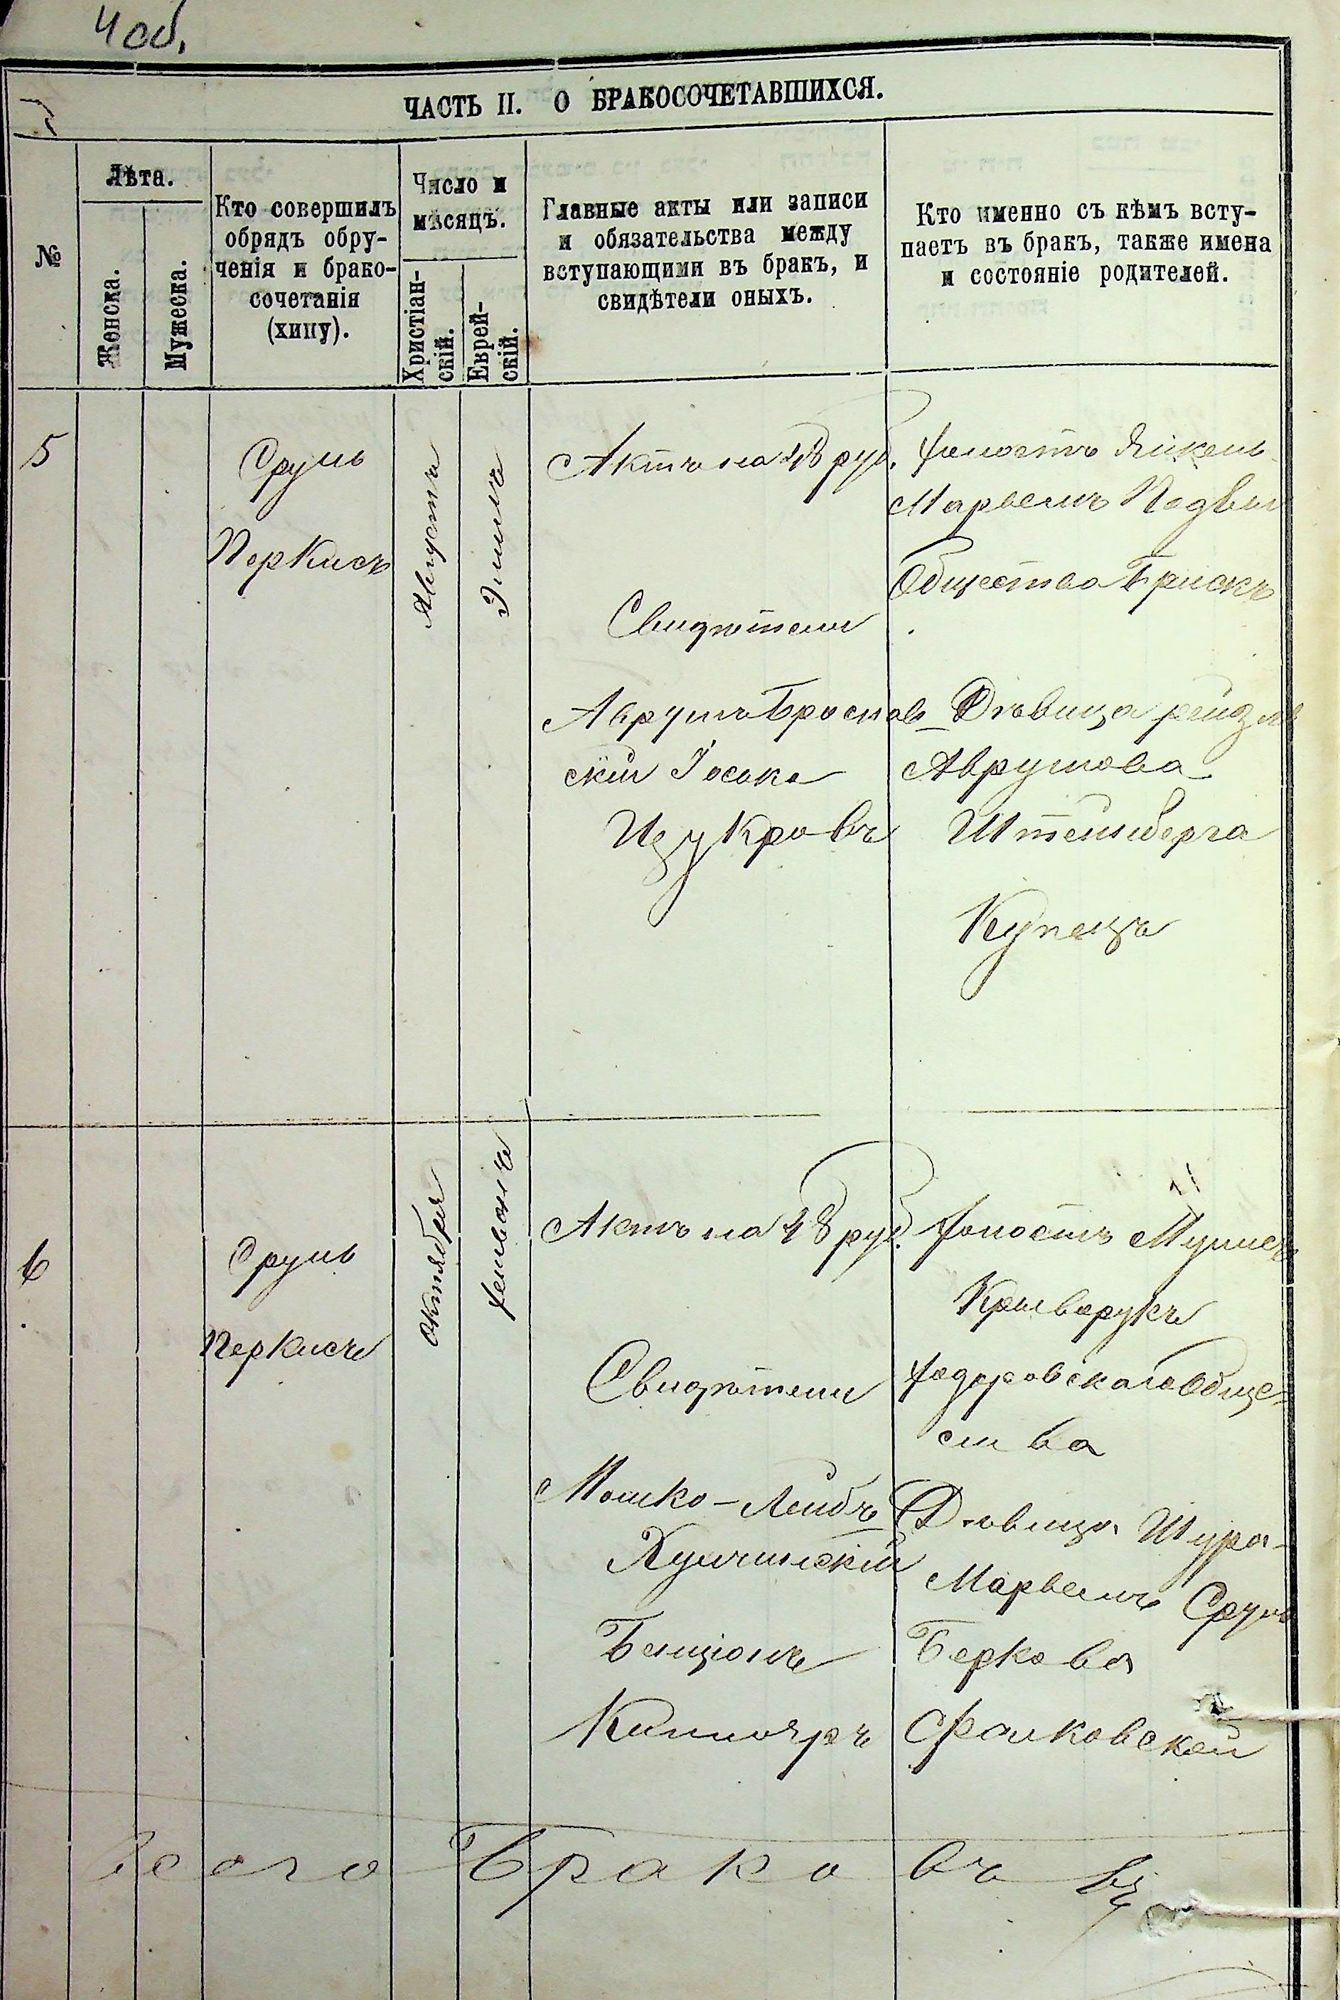 4 об.
ЧАСТЬ II. О БРАКОСОЧЕТАВШИХСЯ.
№
Лѣта.
Женска.
Мужеска.
Кто совершилъ
обрядъ обру-
ченія и брако-
сочетанія
(хипу).
Число и
мѣсяцъ.
Христіан-
скій.
Еврей-
скій.
Главные акты или записи
и обязательства между
вступающими въ бракъ, и
свидѣтели оныхъ.
Кто именно съ кѣмъ всту-
паетъ въ бракъ, также имена
и состояніе родителей.
5
Сруль
Перкисъ
Августъ
Элилъ
Актъ на 48 руб.
Свидѣтели
Аврумъ Броснов-
скій Іосько
Цукровъ
Холостъ Янкель
Марвелиъ
Общества Брискъ
Дѣвица рейзля
Аврумова
Штейнберга
Купецъ
6
Сруль
Перкисъ
Октября
хешвонъ
Актъ на 48 руб.
Свидѣтели
Мошко-Лейбъ
Кучинскій
Бенціонъ
Холостъ
Криворукъ
Ходоровскаго обще-
ства
Дѣвица Шура-
Сруль
Беркова
Фалковской
Всего Браковъ